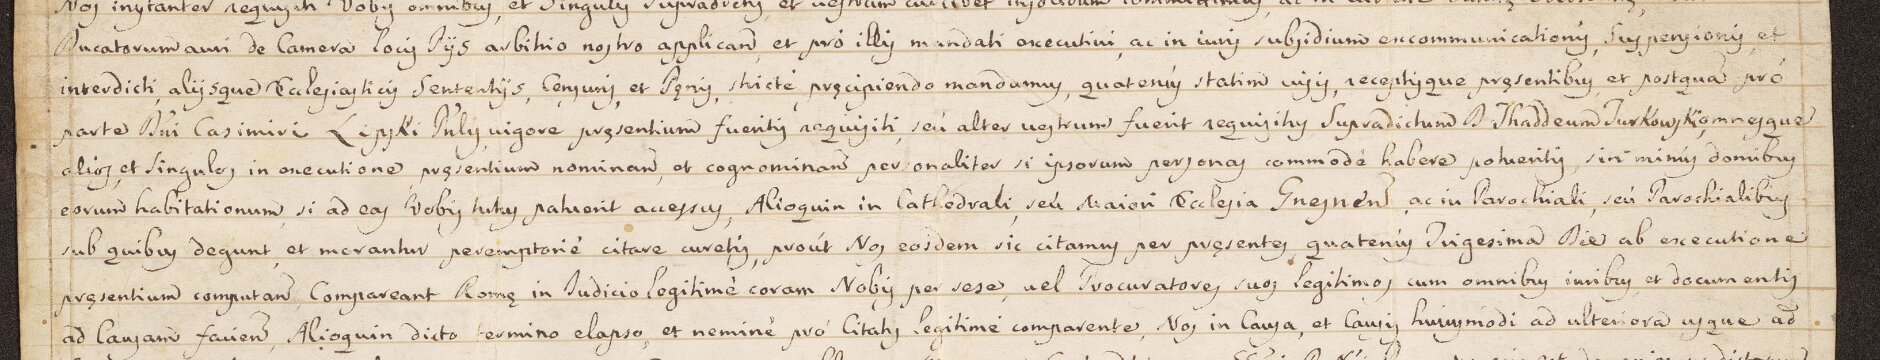 Nos instanter requisiti Vobis omnibus, et Singulis Supradictis, et vestrum cuilibet insolidum committimus, ac in
Ducatorum auri de Camera locis Pijs arbitrio nostro applicañ, et pró illis mandati executivi, ac in iuris subsidium excommunicationis, suspensionis, et
interdicti, alijsque Ecclesiasticis Sententijs, Censuris, et Pęnis, stricté pręcipiendo mandamus, quatenús statim visis, receptisque pręsentibus, et postquã pró
parte Dñi Casimiri Lipski Pulsi, vigore pręsentium fueritis requisiti, seú alter vestrum fuerit requisitus Supradictum D. Thaddeum Turkowski, omnesque
alios, et Singulos in executione pręsentium nominañ, et cognominañ personaliter si ipsorum personas commodé habere potueritis, sin minús domibus
eorum habitationum, si ad eas Vobis tutus patuerit accessus, Alioquin in Cathedrali, seú Maiori Ecclesia Gnesneñ, ac in Parochiali, seú Parochialibus
sub quibus degunt, et morantur peremptorié citare curetis, proút Nos eosdem sic citamus per pręsentes, quatenús Trigesima Die ab executione
pręsentium computañ Compareant Romę in Judicio legitimé coram Nobis per sese, vel Procuratores suos legitimos cum omnibus iuribus, et documentis
ad Causam facieñ, Alioquin dicto termino elapso, et neminé pró Citatis legitimé comparente, Nos in Causa, et Causis huiusmodi ad ulteriora usque ad